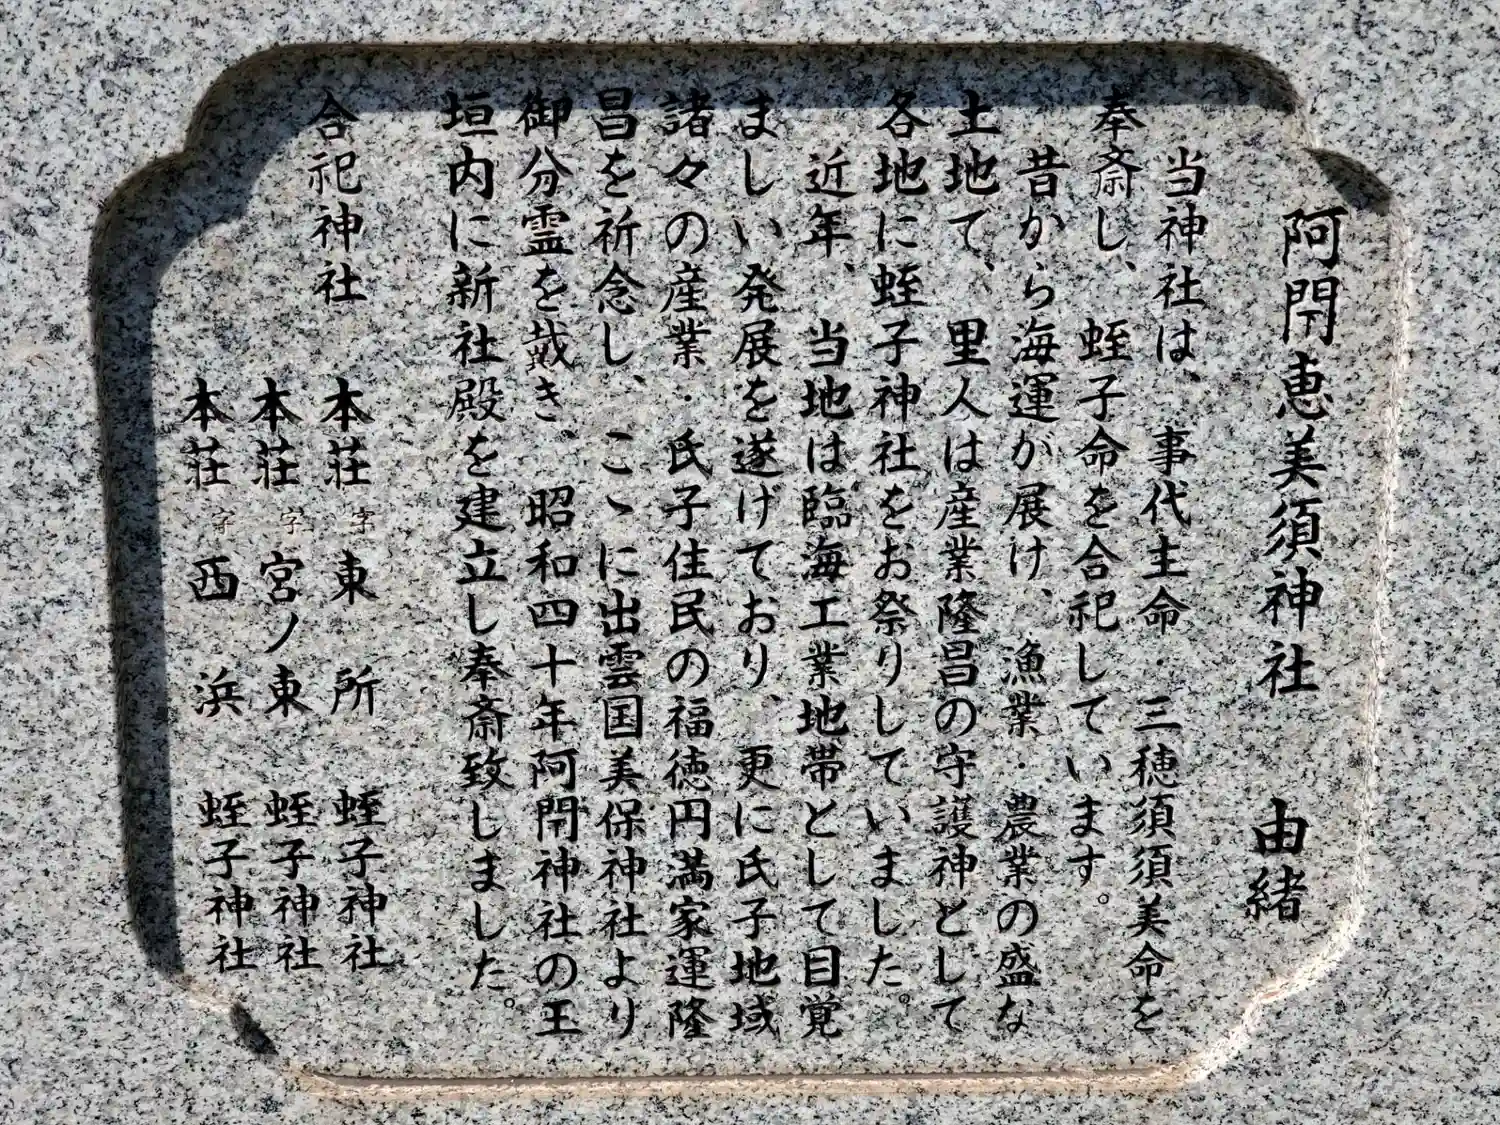 阿閇恵美須神社　由緒
当神社は、事代主命・三穂須須美命を
奉斎し、蛭子命を合祀しています。
昔から海運が展け、漁業・農業の盛な
土地て、里人は産業隆昌の守護神として
各地に蛭子神社をお祭りしていました。
近年、当地は臨海工業地帯として目覚
ましい発展を遂げており、更に氏子地域
諸々の産業・氏子住民の福徳円満家運隆
昌を祈念し、こゝに出雲国美保神社より
御分霊を戴き、昭和四十年阿閇神社の玉
垣内に新社殿を建立し奉斎致しました。
合祀神社　本荘字東所　蛭子神社
本荘字宮ノ東　蛭子神社
本荘字西浜　蛭子神社